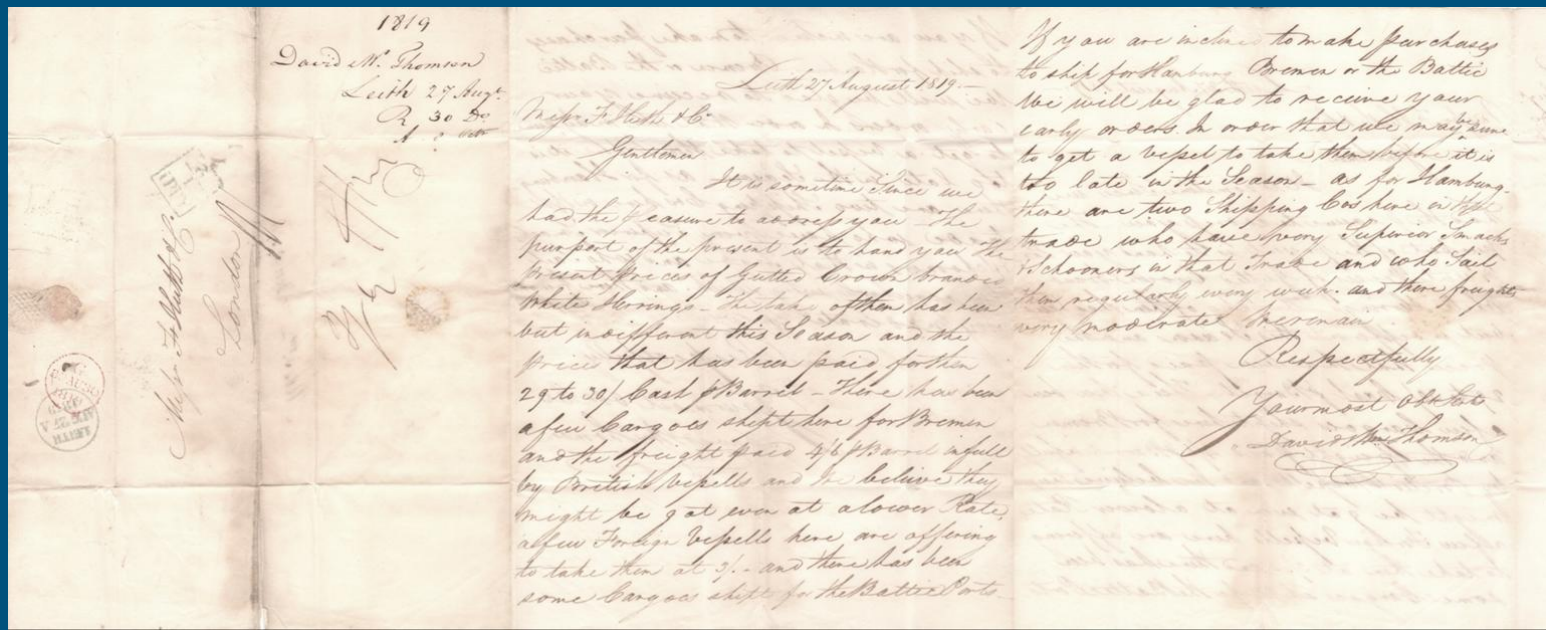 1819
David Wm Thomson
Leith 27 Augt
R 30 Do
A
Messrs
London
LEITH
Leith 27 August 1819 —
Messrs F Huth & Co
Gentlemen
It is sometime since we
had the pleasure to address you – The
purport of the present is to hand you the
present prices of Gutted Crown branded
White Herrings – The take of them has been
but indifferent this Season and the
prices that has been paid for them
29 to 30/ Cash p Barrel – There has been
a few Cargoes shipt here for Bremen
and the freight paid 4/6 p Barrel in full
by British vessells and we believe they
might be got even at a lower Rate,
a few Foreign vessells here are offering
to take them at 3/- and there has been
some Cargoes shipt for the Baltic Ports
If you are inclined to make purchases
to ship for Hamburg Bremen or the Baltic
We will be glad to receive your
early orders. In order that we may be sure
to get a vessel to take them before it is
too late in the Season – as for Hamburg.
there are two Shipping Cos here in
trade who have very Superior Smacks
& Schooners in that Trade and who Sail
then regularly every week. and there freights
very moderate We remain
Respectfully
Your most obt Sts
David & Wm Thomson